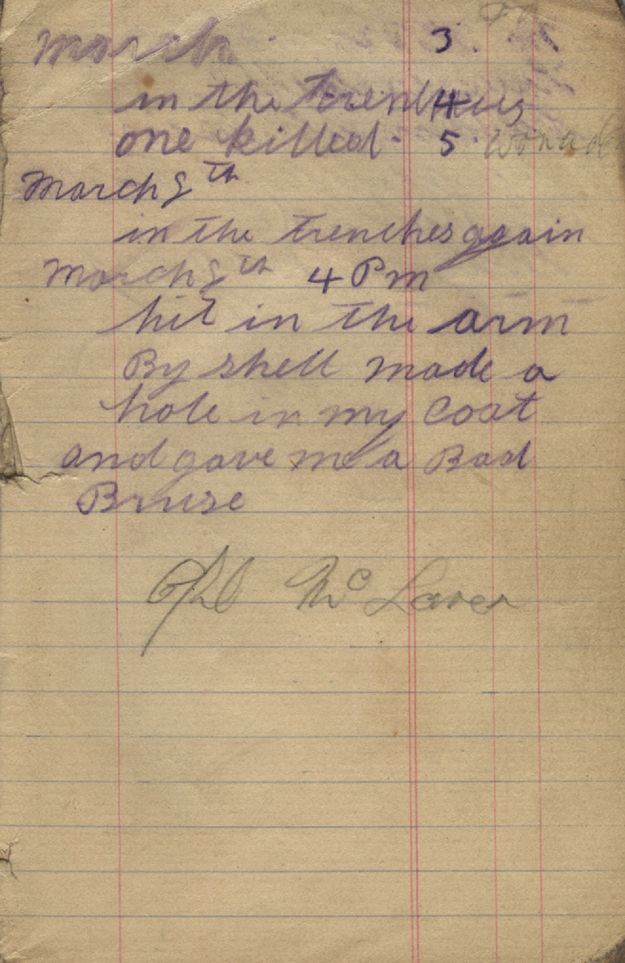 March 3.
in the trenches 4
one killed - 5.
March 8th
in the trenches again
March 8th 4 Pm
hit in the arm
By shell made a
hole in my Coat
and gave me a Bad
Bruise
Cpl McLaren